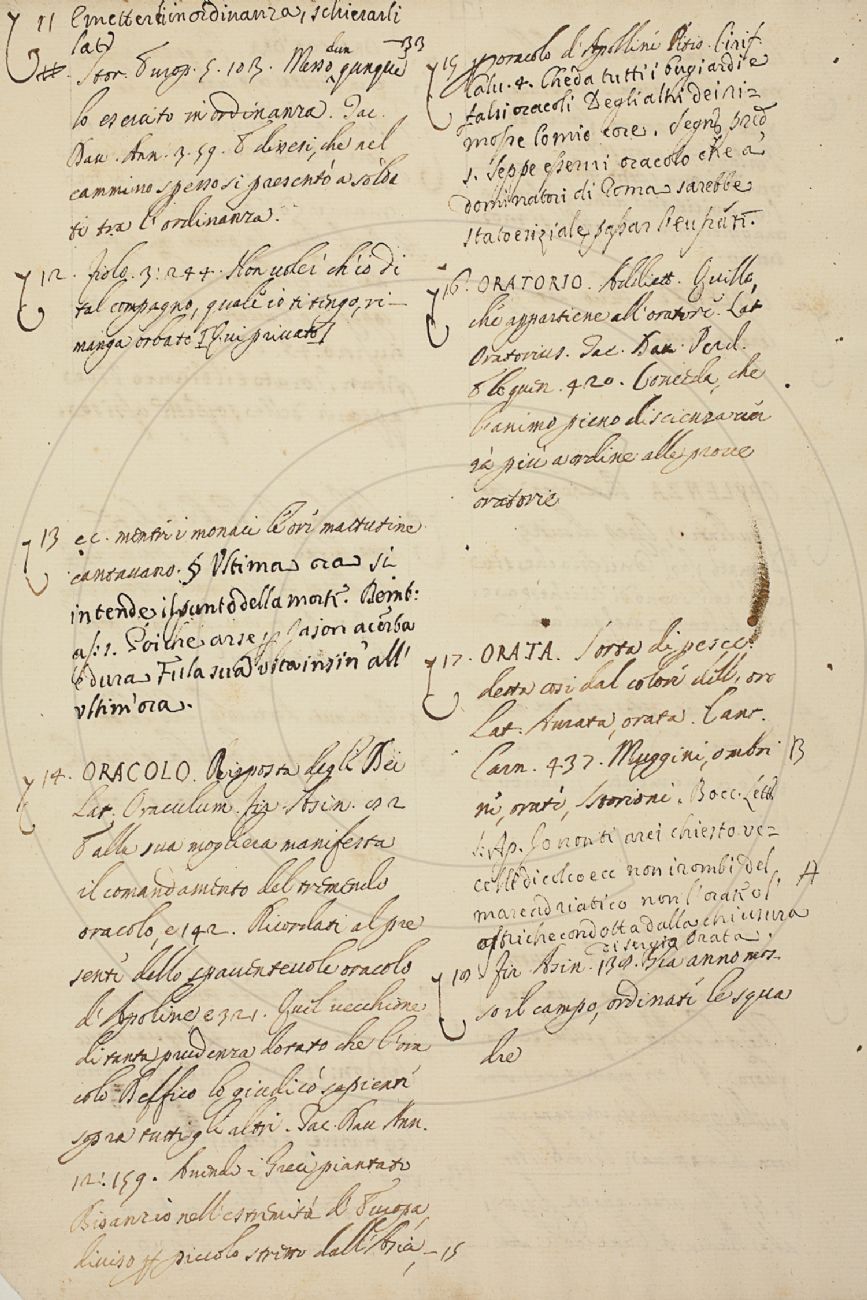 11 e mettersi in ordinanza, schierarsi
Lat.
Stor. Europ. 5. 103. Messo dunque
lo esercito in ordinanza. Tac.
Dav. Ann. 3. 59. E dicesi, che nel
cammino spesso si presentò a solda
ti tra l'ordinanza.
12. 3. 244. Non volei ch'io di
tal compagno, quale io ti tingo, ri-
manga orbato [Qui privato]
13 ec. mentre i monaci le ore mattutine
cantavano. § Ultima ora si
intende il punto della morte. Bemb:
as: 1. Poiche arse Jason acerba
e dura Fu la sua vita insin' all'
ultim'ora.
14. ORACOLO. Risposta degli Dei
Lat. Oraculum. Fir. Asin.
E alla sua mogliera manifesta
il comandamento del tremendo
oracolo, e 142. Ricordati al pre
sente dello spaventevole oracolo
d'Apolline e 321. Quel vecchione
di tanta prudenza dotato che l'ora
colo Delffico lo giudicò sapiente
sopra tutti gli altri. Tac. Dav. Ann.
12. 159. Avendo i Greci piantato
Bisanzio nell'estremità d'Europa,
diviso p piccolo stretto dall'Asia, - 15
15 p oracolo d'Apolline Pitio.
Calv. 4. Che da tutti i bugiardi e
falsi oracoli Degli altri dei ri-
mosse
1. Seppe esservi oracolo che a
dominatori di Roma sarebbe
stato
16. ORATORIO. Addiett. Quello,
che appartiene all'oratore. Lat.
Oratorius. Tac. Dav. Perd.
Eloquen. 420. Conceda, che
l'animo pieno di scienza ver
rà più a ordine alle prove
oratorie
17. ORATA. Sorta di pesce
detta così dal colore dell'oro
Lat. Aurata, orata. Cant.
Carn. 437. Muggini, ombri B
ne, orate, storioni. Bocc. Lett.
Ap. Io non ti arei chiesto
non i rombi del
mare adriatico non l'orate o l' A
ostriche condotte dalla chiusura
di sergio Orata.
18. Fir. Asin. 138. Già anno mos
so il campo, ordinate le squa
dre